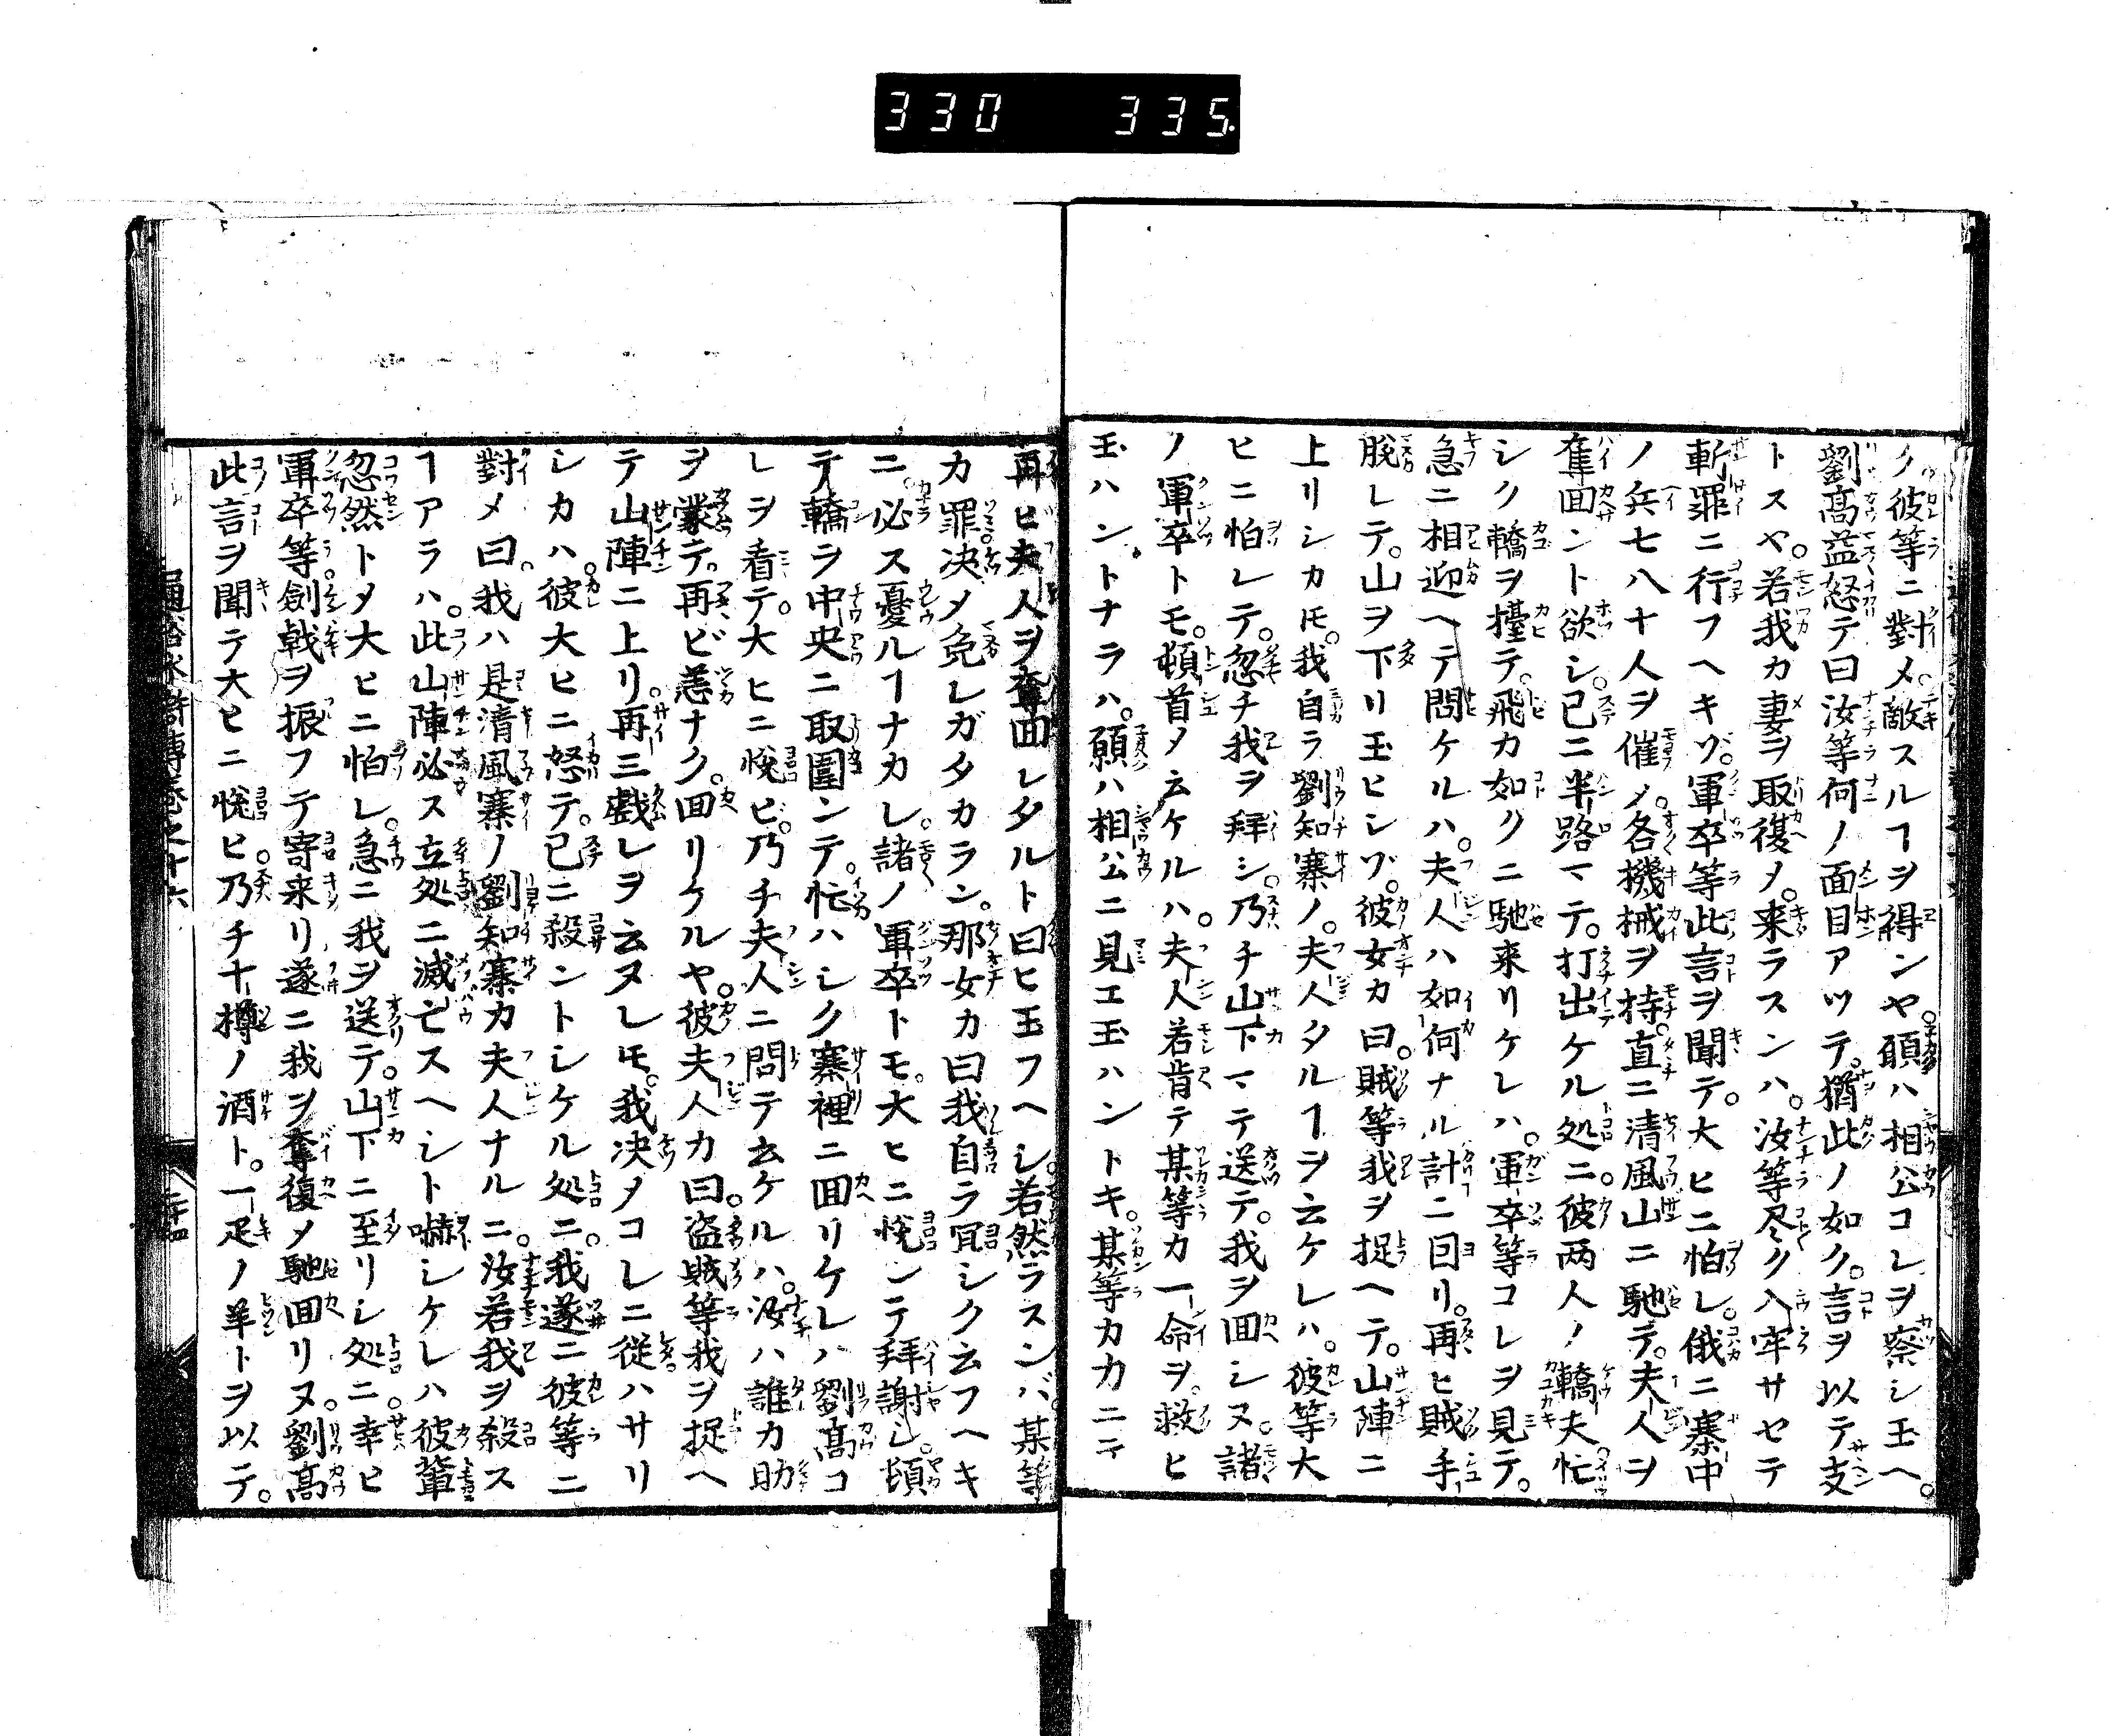 330 335.
ク彼等ニ對メ敵スルヿヲ得ンヤ。願ハ相公コレヲ察シ玉ヘ。
劉髙益怒テ曰汝等何ノ面目アツテ。猶此ノ如ク。言ヲ以テ支
トスヤ。若我カ妻ヲ取復メ。来ラスンハ。汝等尽ク入牢サセテ
斬罪ニ行フヘキゾ。軍卒等此言ヲ聞テ。大ヒニ怕レ。俄ニ寨中
ノ兵七八十人ヲ催メ。各機械ヲ持。直ニ清風山ニ馳テ。夫人ヲ
奪囬ント欲シ。已ニ半路マテ。打出ケル処ニ。彼両人ノ轎夫忙
シク轎ヲ擡テ。飛カ如クニ馳来リケレハ。軍卒等コレヲ見テ。
急ニ相迎ヘテ問ケルハ。夫人ハ如何ナル計ニ囙リ。再ヒ賊手
脱レテ。山ヲ下リ玉ヒシゾ。彼女カ曰。賊等我ヲ捉ヘテ。山陣ニ
上リシカ𪜈。我自ラ劉知寨ノ。夫人タルヿヲ云ケレハ。彼等大
ヒニ怕レテ。忽チ我ヲ拜シ。乃チ山下マテ送テ。我ヲ囬シヌ。諸
ノ軍卒トモ。頓首メ云ケルハ。夫人若肯テ某等カ一命ヲ。救ヒ
玉ハントナラハ。願ハ相公ニ見エ玉ハントキ。某等カ力ニテ
再ヒ夫人ヲ奪囬レタルト曰ヒ玉フヘシ。若然ラスンバ。某等
カ罪决メ免レガタカラン。那女カ曰我自ラ冝シク云フヘキ
ニ。必ス憂ルヿナカレ。諸ノ軍卒トモ。大ヒニ悅ンテ拜謝し。頓
テ轎ヲ中央ニ取圍ンテ。忙ハシク寨裡ニ囬リケレハ劉髙コ
レヲ看テ。大ヒニ悅ビ。乃チ夫人ニ問テ云ケルハ。汝ハ誰カ助
ヲ蒙テ。再ビ恙ナク。囬リケルヤ。彼夫人カ曰。盗賊等我ヲ捉ヘ
テ山陣ニ上リ。再三戯レヲ云ヌレ𪜈。我决メコレニ從ハサリ
シカハ。彼大ヒニ怒テ。已ニ殺ントシケル処ニ。我遂ニ彼等ニ
對メ曰。我ハ是清風寨ノ劉知寨カ夫人ナルニ。汝若我ヲ殺ス
ヿアラハ。此山陣必ス立処ニ滅亡スヘシト嚇シケレハ彼輩
忽然トメ大ヒニ怕レ。急ニ我ヲ送テ。山下ニ至リシ処ニ。幸ヒ
軍卒等。劍戟ヲ振フテ寄来リ遂ニ我ヲ奪復メ馳囬リヌ。劉髙
此言ヲ聞テ大ヒニ悅ヒ。乃チ十樽ノ酒ト。一疋ノ羊トヲ以テ。
通俗水滸傳卷之十六 二十四